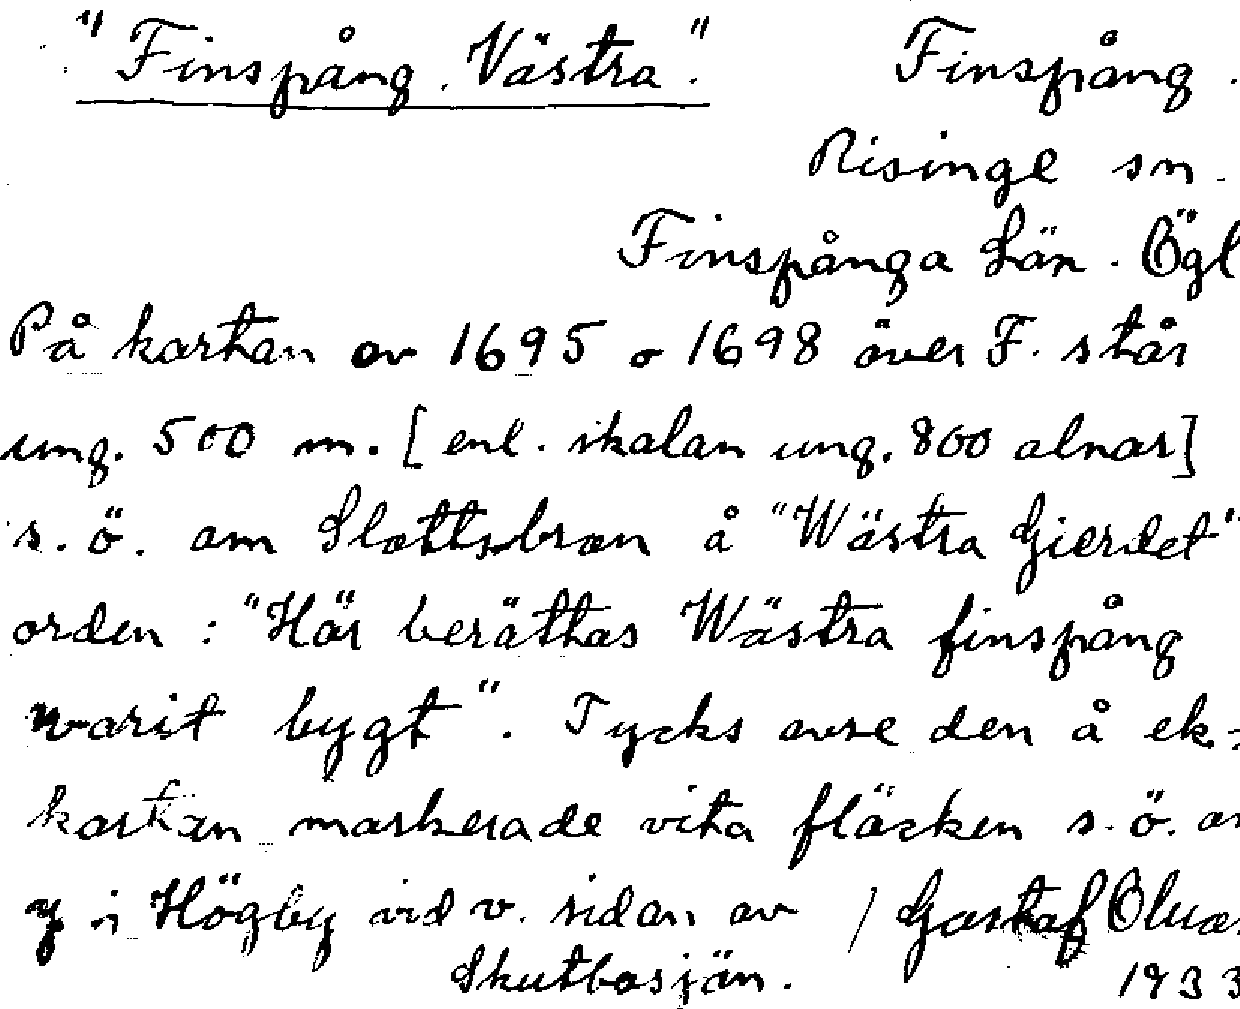 "Finspång. Västra". Finspång.
Risinge sn.
Finspånga Län. Ögl
På kartan av 1695 o 1698 över F. står
ung. 500 m. [enl. skalan ung. 800 alnar]
s.ö. om Slottsbron å "Wästra Gierdet"
orden: "Här berättas Wästra finspång
warit bygt". Tycks avse den å ek.-
kartan markerade vita fläcken s.ö. om
y i Högby vid v. sidan av / Gustaf
Skutbosjön. 1933